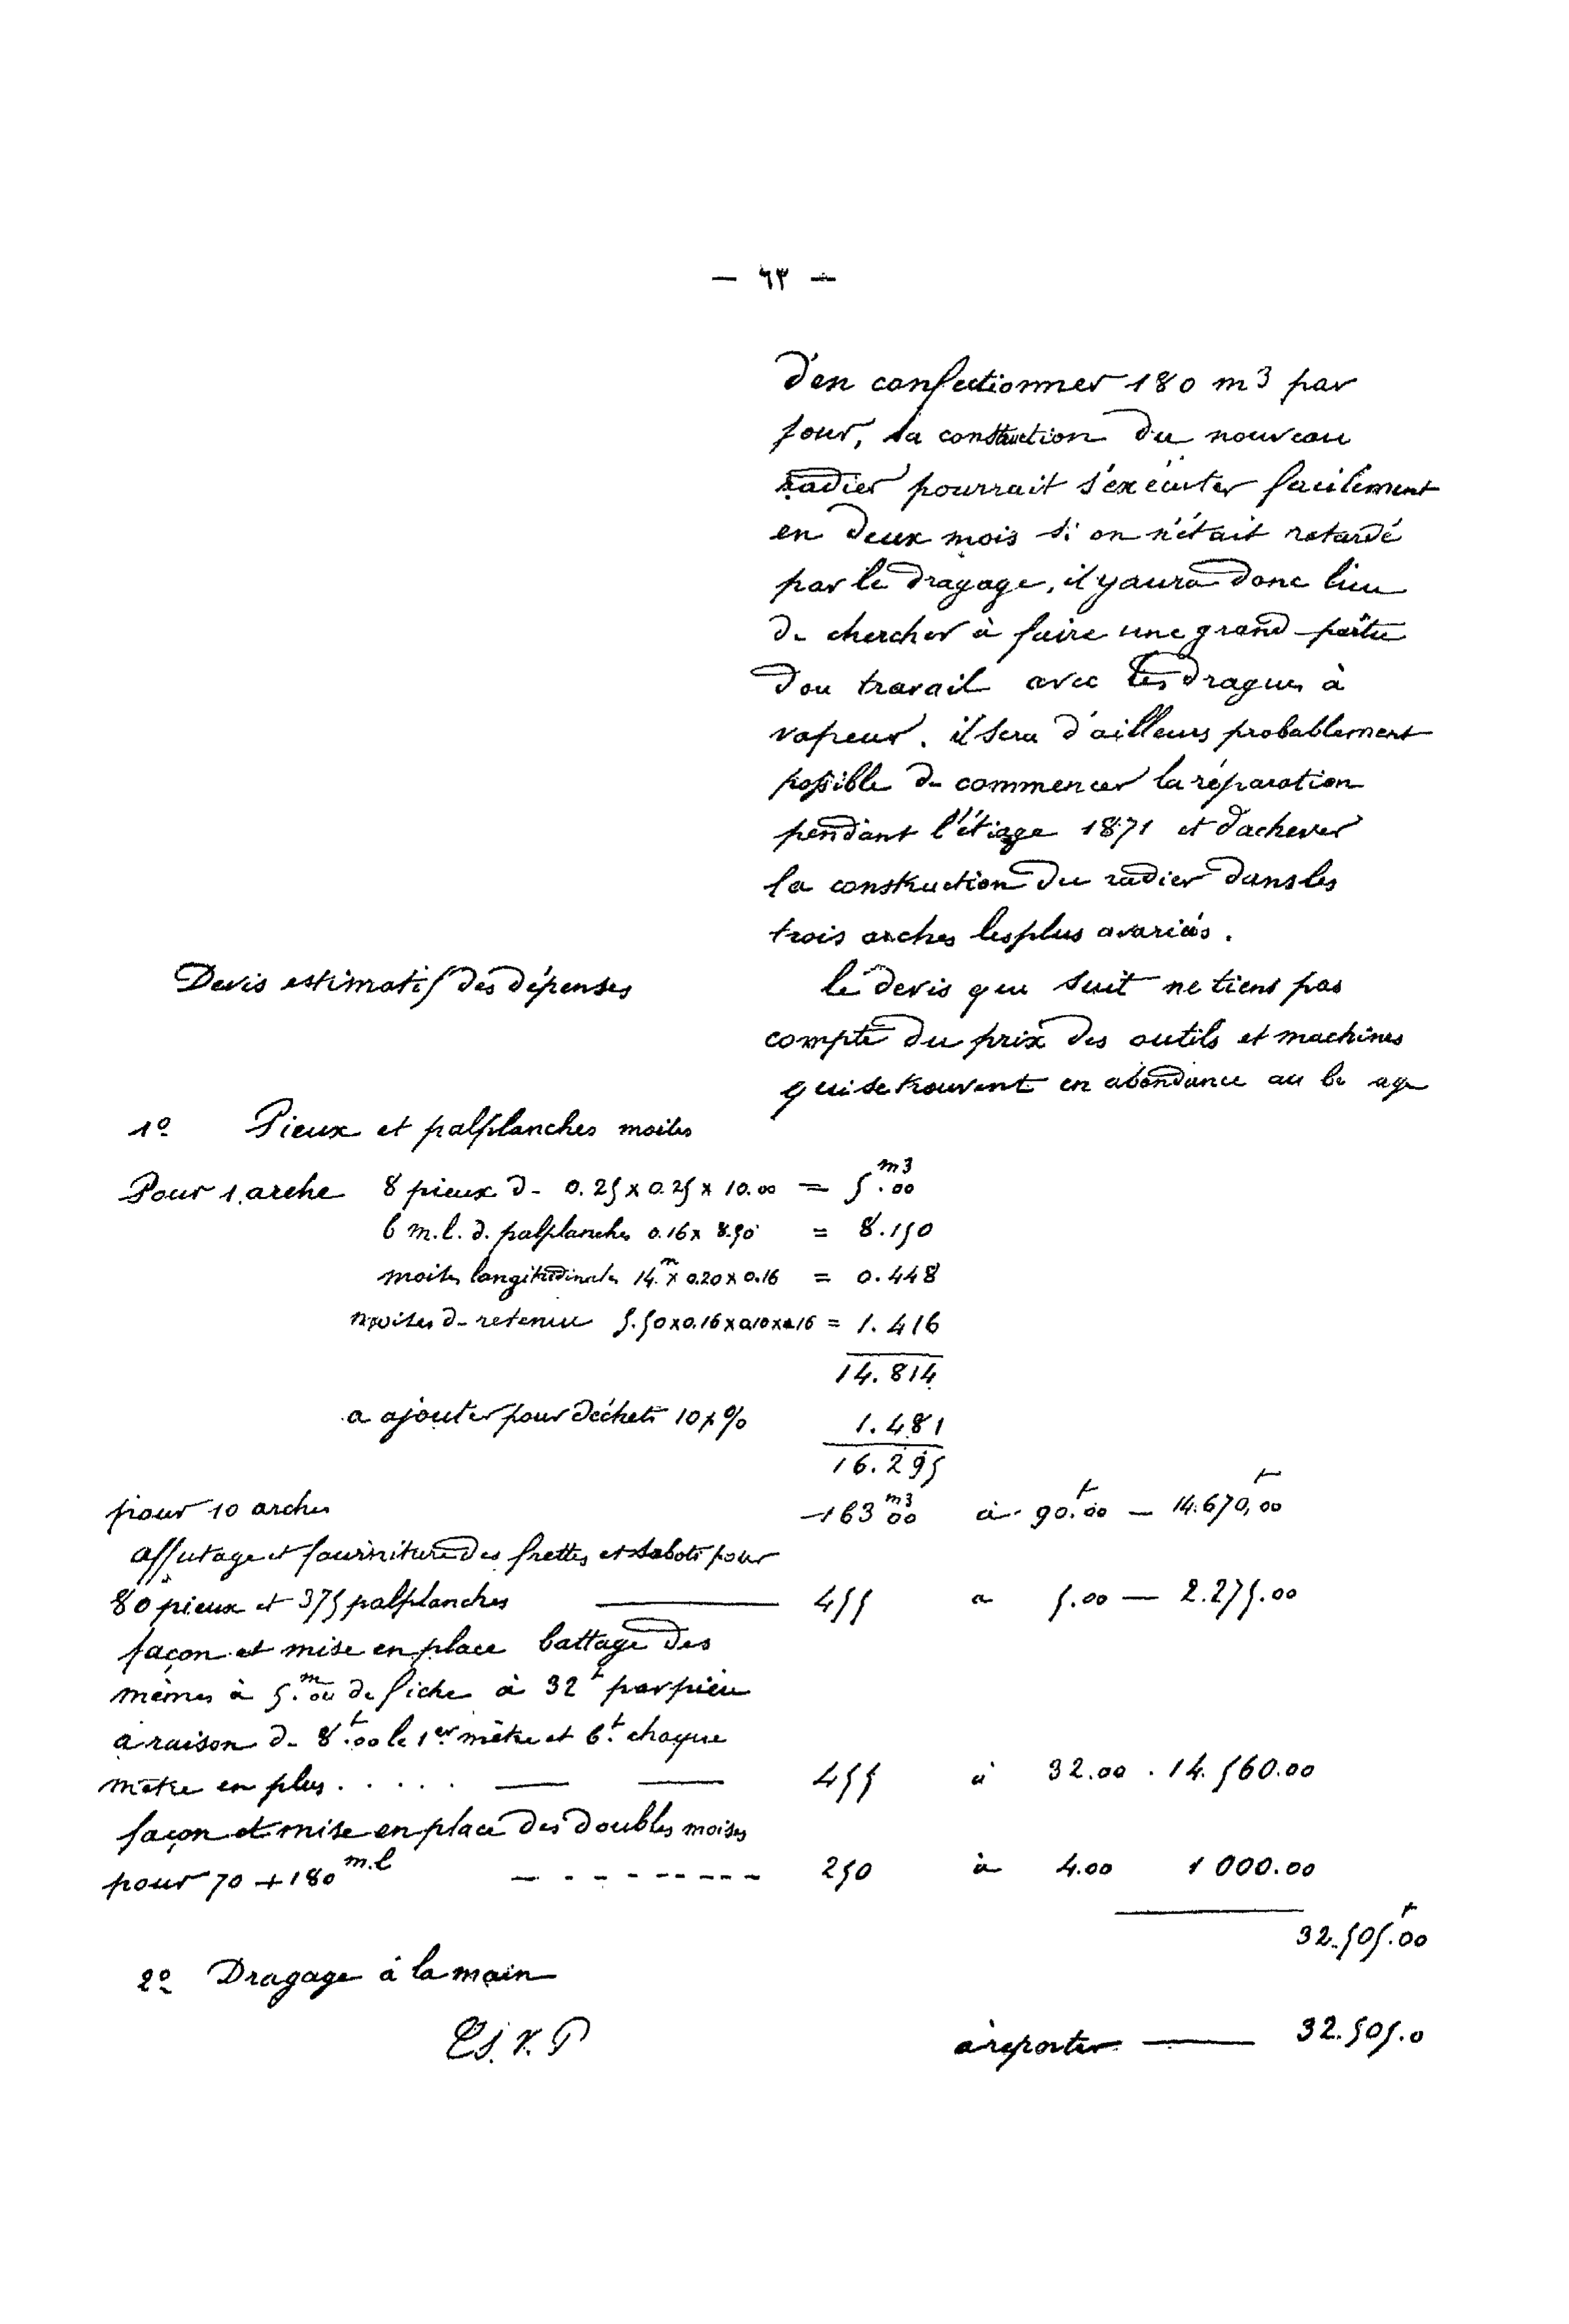 — ٦٣ —
d'en confectionner 180 m3 par
jour, la construction du nouveau
radier pourrait s'exécuter facilement
en deux mois si on n'était retardé
par le dragage, il y aura donc lieu
de chercher à faire une grand partie
dou travail avec les dragues à
vapeur. il sera d'ailleurs probablement
possible de commencer la réparation
pendant l'étiage 1871 et d'achever
la construction du radier dans les
trois arches les plus avariés.
Devis estimatif des dépenses
le devis que suit ne tiens pas
compte du prix des outils et machines
qui se trouvent en abondance au
1º Pieux et palplanches moises
Pour 1 arche 8 pieux de 0.25 x 0.25 x 10.00 = 5.00 m3
6 m.l. d. palplanches 0.16 x 8.50 = 8.150
moises longitudinales 14.m x 0.20 x 0.16 = 0.448
moises de retenue 5.50 x 0.16 x 0.10 x 0.16 = 1.416
14.814
a ajouter pour déchets 10 p % 1.481
16.295
pour 10 arches 163 m3 00 à 90.t00 — 14.670,00 t
affutage et fourniture des frettes et sabots pour
80 pieux et 375 palplanches — 455 a 5.00 — 2.275.00
façon et mise en place battage des
mêmes à 5.m00 de fiche à 32 t par pieu
à raison de 8 t.00 le 1er mètre et 6.t chaque
mètre en plus . . . . . — — 455 à 32.00 . 14.560.00
façon et mise en place des doubles moises
pour 70 + 180 m.l - - - - - - - - - 250 à 4.00 1 000.00
32.505.00 t
2º Dragage à la main
T.S.V.P
à reporter — 32.505.0